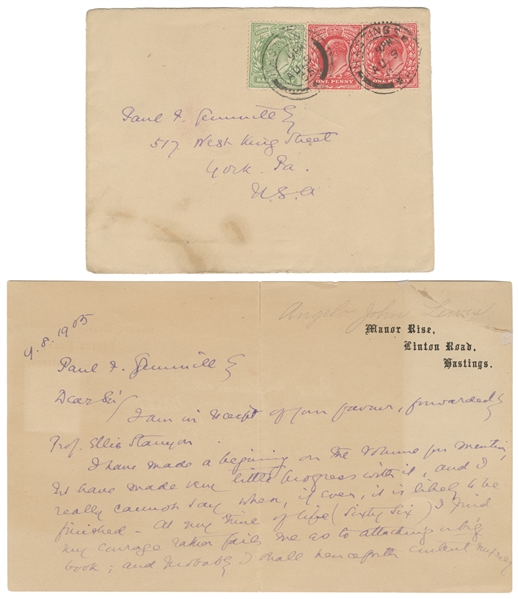 HASTINGS
ONE PENNY ONE PENNY
Paul F. Gemmill Esq
517 West King Street
York. Pa.
U.S.A
Angelo John Lewis
Manor Rise,
Linton Road,
Hastings.
9.8.1905
Paul F. Gemmill Esq
Dear Sir
I am in receipt of your favour, forwarded by
Prof. Ellis Stanyon.
I have made a beginning on the volume you mention,
but have made very little progress with it, and I
really cannot say when, if ever, it is likely to be
finished. At my time of life (Sixty Six) I find
my courage rather fails me as to attacking a big
book; and probably I shall henceforth content myself